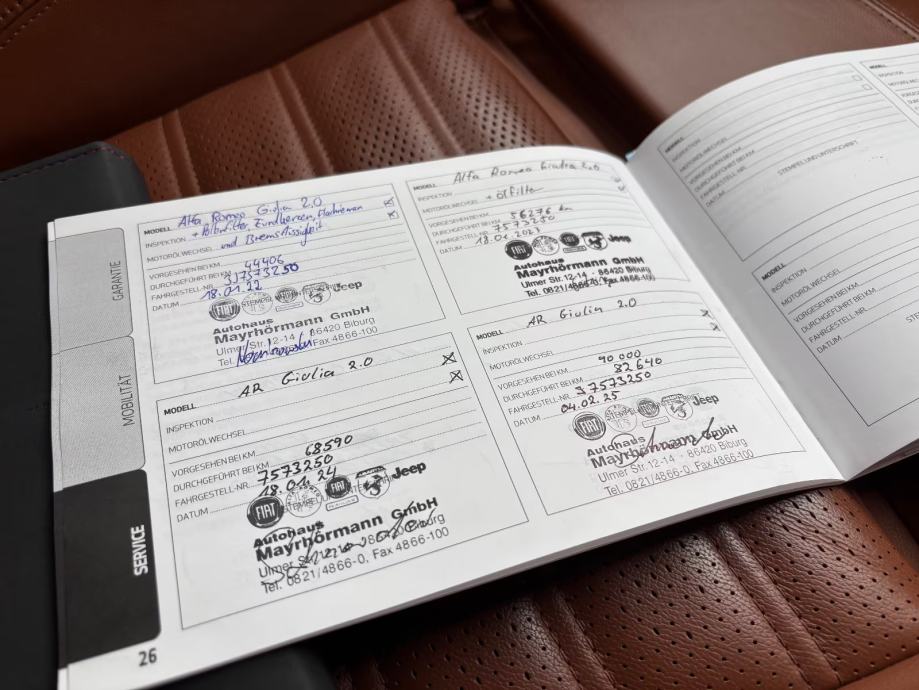 GARANTIE
MOBILITÄT
SERVICE
MODELL Alfa Romeo Giulia 2.0
INSPEKTION
MOTORÖLWECHSEL und Bremsflüssigkeit
VORGESEHEN BEI KM
DURCHGEFÜHRT BEI KM 44406
FAHRGESTELL-NR. J7573250
DATUM 18.01.22
FIAT Jeep
Autohaus
Mayrhörmann GmbH
Ulmer Str. 12-14 86420 Biburg
Tel. Fax 4866-100
MODELL AR Giulia 2.0
INSPEKTION
MOTORÖLWECHSEL
VORGESEHEN BEI KM
DURCHGEFÜHRT BEI KM 68590
FAHRGESTELL-NR. 7573250
DATUM 18.01.24
FIAT Jeep
Autohaus
Mayrhörmann GmbH
Ulmer Str. 86420 Biburg
Tel. 0821/4866-0, Fax 4866-100
26
MODELL Alfa Romeo Giulia 2.0
INSPEKTION
MOTORÖLWECHSEL + Ölfilter
VORGESEHEN BEI KM
DURCHGEFÜHRT BEI KM 56276 km
FAHRGESTELL-NR. 7573250
DATUM 18.01.2023
FIAT Jeep
Autohaus
Mayrhörmann GmbH
Ulmer Str. 12-14 - 86420 Biburg
Tel. 0821/4866-0, Fax 4866-100
MODELL AR Giulia 2.0
INSPEKTION
MOTORÖLWECHSEL
VORGESEHEN BEI KM 90 000
DURCHGEFÜHRT BEI KM 82640
FAHRGESTELL-NR. J7573250
DATUM 04.02.25
FIAT Jeep
Autohaus
Mayrhörmann GmbH
Ulmer Str. 12-14 - 86420 Biburg
Tel. 0821/4866-0, Fax 4866-100
MODELL
INSPEKTION
MOTORÖLWECHSEL
VORGESEHEN BEI KM
DURCHGEFÜHRT BEI KM
FAHRGESTELL-NR.
DATUM
STEMPEL/UNTERSCHRIFT
MODELL
INSPEKTION
MOTORÖLWECHSEL
VORGESEHEN BEI KM
DURCHGEFÜHRT BEI KM
FAHRGESTELL-NR.
DATUM
MODELL
INSPEKTION